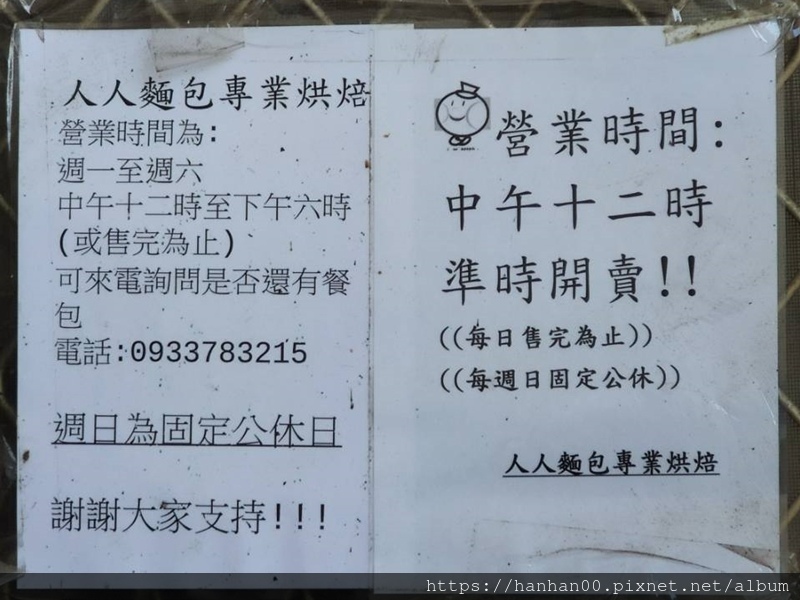 人人麵包專業烘焙
營業時間為:
週一至週六
中午十二時至下午六時
(或售完為止)
可來電詢問是否還有餐
包
電話:0933783215
週日為固定公休日
謝謝大家支持!!!
營業時間:
中午十二時
準時開賣!!
((每日售完為止))
((每週日固定公休))
人人麵包專業烘焙
https://hanhan00.pixnet.net/album